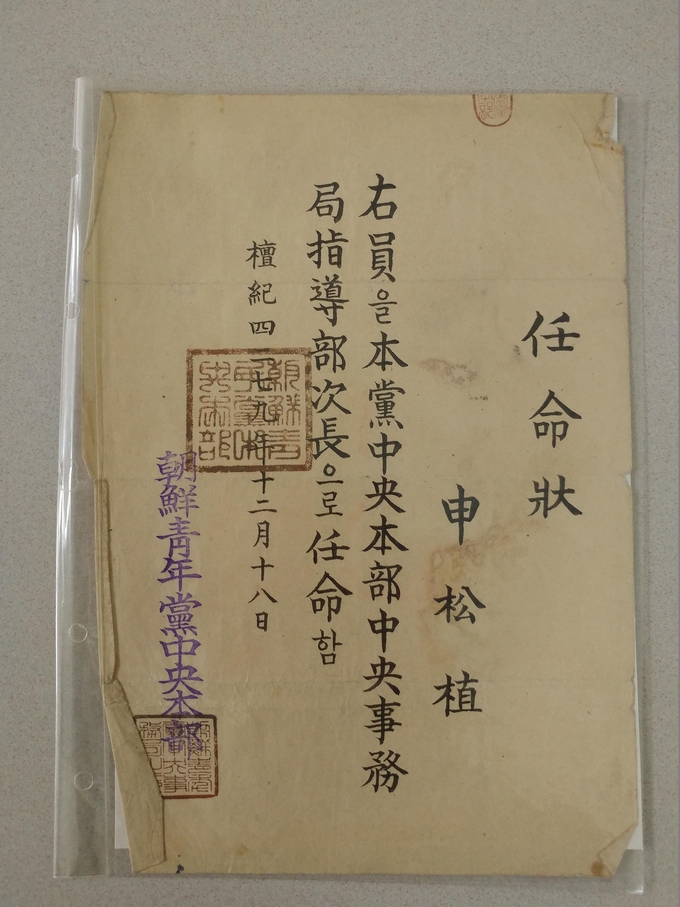 任命狀
申松植
右員을本黨中央本部中央事務
局指導部次長으로任命함
檀紀四二七九年十二月十八日
朝鮮青年黨中央本部